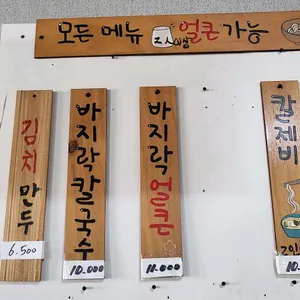 모든 메뉴 얼큰 가능
김치만두
6.500
바지락칼국수
10.000
바지락얼큰
11.000
칼제비
10.